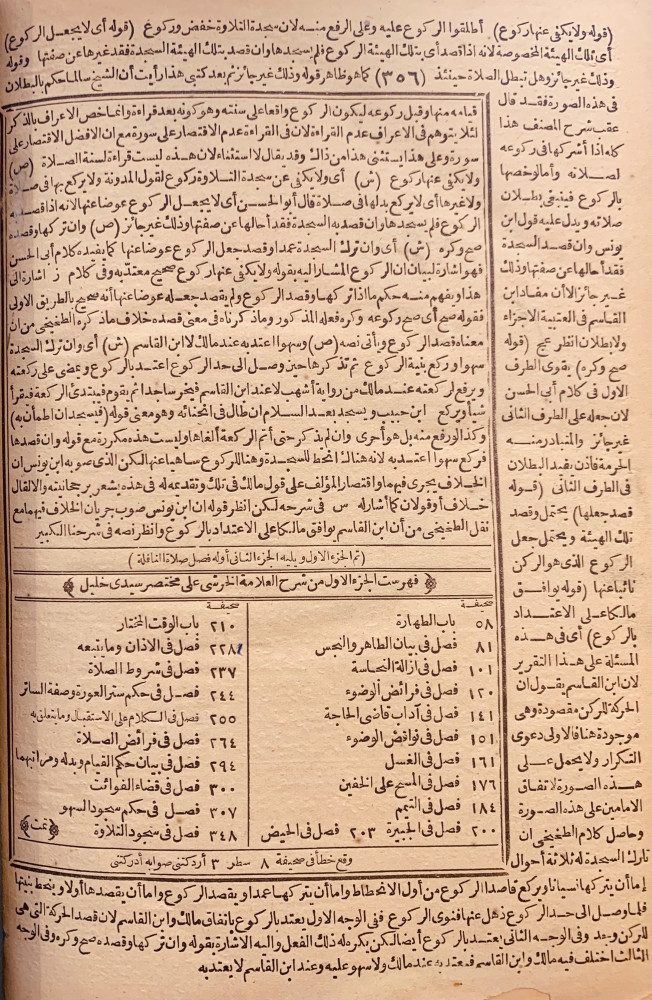 (قوله ولا يكفى عنها ركوع) أطلقوا الركوع عليه وعلى الرفع منه لان سجدة التلاوة خفض وركوع (قوله أى لا يجعل الركوع)
أى تلك الهيئة المخصوصة لانه اذا قصد أى بتلك الهيئة الركوع فلم يسجدها وان قصد بتلك الهيئة السجدة فقد غيرها عن صفتها وقوله
وذلك غير جائز وهل تبطل الصلاة حينئذ (٣٥٦) كما هو ظاهر قوله وذلك غير جائز ثم بعد كتبى هذا رأيت أن الشيخ سالما حكم بالبطلان
فى هذه الصورة فقد قال
عقب شرح المصنف هذا
كله اذا أشركها فى ركوعه
لصلاته وأما لو خصها
بالركوع فينبغى بطلان
صلاته ويدل عليه قول ابن
يونس وان قصد السجدة
فقد أحالها عن صفتها وذلك
غير جائز الا أن مفاد ابن
القاسم فى العتبية الاجزاء
ولا بطلان انظر عج (قوله
صح وكره) يقوى الطرف
الاول فى كلام أبى الحسن
لان جعله على الطرف الثانى
غير جائز والمتبادر منه
الحرمة فاذن يقيد البطلان
فى الطرف الثانى (قوله
قصد جعلها) يحتمل وقصد
تلك الهيئة ويحتمل جعل
الركوع الذى هو الركن
نائبا عنها (قوله يوافق
مالكا على الاعتداد
بالركوع) أى فى هذه
المسئلة على هذا التقرير
لان ابن القاسم يقول ان
الحركة للركن مقصودة وهى
موجودة هنا فالاولى دعوى
التكرار ولا يحمل على
هذه الصورة لاتفاق
الامامين على هذه الصورة
وحاصل كلام الطخيخى ان
تارك السجدة له ثلاثة أحوال
قيامه منها وقبل ركوعه ليكون الركوع واقعا على سنته وهو كونه بعد قراءة وانما خص الاعراف بالذكر
لئلا يتوهم فى الاعراف عدم القراءة لان فى القراءة عدم الاقتصار على سورة مع ان الافضل الاقتصار على
سورة وعلى هذا يستثنى هذا من ذاك وقد يقال لا استثناء لان هذه ليست قراءة لسنة الصلاة (ص)
ولا يكفى عنها ركوع (ش) أى ولا يكفى عن سجدة التلاوة ركوع لقول المدونة ولا يركع بها فى صلاة
ولا غيرها أى لا يركع بدلها فى صلاة قال أبو الحسن أى لا يجعل الركوع عوضا عنها لانه اذا قصد به
الركوع فلم يسجدها وان قصد به السجدة فقد أحالها عن صفتها وذلك غير جائز (ص) وان تركها وقصده
صح وكره (ش) أى وان ترك السجدة عمدا وقصد جعل الركوع عوضا عنها كما يفيده كلام أبى الحسن
فهو اشارة لبيان ان الركوع المشار اليه بقوله ولا يكفى عنها ركوع صحيح معتد به وفى كلام ز اشارة الى
هذا ويفهم منه حكم ما اذا تركها وقصد الركوع ولم يقصد جعله عوضا عنها أنه صحيح بالطريق الاولى
فقوله صح أى صح ركوعه وكره فعله المذكور وما ذكرناه فى معنى قصده خلاف ما ذكره الطخيخى من ان
معناه قصد الركوع ويأتى نصه (ص) وسهوا اعتد به عند مالك لا ابن القاسم (ش) أى وان ترك السجدة
سهوا وركع بنية الركوع ثم تذكرها حين وصل الى حد الركوع اعتد بالركوع ويمضى على ركعته
ويرفع لركعته عند مالك من رواية أشهب لا عند ابن القاسم فيخر ساجدا ثم يقوم فيبتدئ الركعة فيقرأ
شيأ ويركع ابن حبيب ويسجد بعد السلام ان طال فى انحنائه وهو معنى قوله (فيسجد ان اطمأن به)
وكذا لو رفع منه بل هو أحرى وان لم يذكر حتى أتم الركعة ألغاها وليست هذه مكررة مع قوله وان قصدها
فركع سهوا اعتد به لانه هناك انحط للسجدة وهنا للركوع ساهيا عنها لكن الذى صوبه ابن يونس ان
الخلاف يجرى فيهما واقتصار المؤلف على قول مالك فى تلك وتقدمه له فى هذه يشعر برجحانيته والا لقال
خلاف أو قولان كما أشار له س فى شرحه لكن انظر قوله ان ابن يونس صوب جريان الخلاف فيهما مع
نقل الطخيخى من أن ابن القاسم يوافق مالكا على الاعتداد بالركوع وانظر نصه فى شرحنا الكبير
(تم الجزء الاول ويليه الجزء الثانى أوله فصل صلاة النافلة)
فهرست الجزء الاول من شرح العلامة الخرشى على مختصر سيدى خليل
صحيفة
٥٨ باب الطهارة
٨١ فصل فى بيان الطاهر والنجس
١٠١ فصل فى ازالة النجاسة
١٢٠ فصل فى فرائض الوضوء
١٤١ فصل فى آداب قاضى الحاجة
١٥١ فصل فى نواقض الوضوء
١٦١ فصل فى الغسل
١٧٦ فصل فى المسح على الخفين
١٨٤ فصل فى التيمم
٢٠٠ فصل فى الجبيرة ٢٠٣ فصل فى الحيض
صحيفة
٢١٠ باب الوقت المختار
٢٢٨ فصل فى الاذان وما يتبعه
٢٣٧ فصل فى شروط الصلاة
٢٤٤ فصل فى حكم ستر العورة وصفة الساتر
٢٥٥ فصل فى الكلام على الاستقبال وما يتعلق به
٢٦٤ فصل فى فرائض الصلاة
٢٩٤ فصل فى بيان حكم القيام وبدله ومراتبهما
٣٠٠ فصل فى قضاء الفوائت
٣٠٧ فصل فى حكم سجود السهو
٣٤٨ فصل فى سجود التلاوة (تمت)
وقع خطأ فى صحيفة ٨ سطر ٣ أردكتنى صوابه أدركتنى
إما أن يتركها نسيانا ويركع قاصدا الركوع من أول الانحطاط واما أن يتركها عمدا ويقصد الركوع واما أن يقصدها أولا وينحط بنيتها
فلما وصل الى حد الركوع ذهل عنها فنوى الركوع ففى الوجه الاول يعتد بالركوع باتفاق مالك وابن القاسم لان قصد الحركة التى هى
للركن وجد وفى الوجه الثانى يعتد بالركوع أيضا لكن يكره له ذلك الفعل واليه الاشارة بقوله وان تركها وقصده صح وكره وفى الوجه
الثالث اختلف فيه مالك وابن القاسم فيعتد به عند مالك ولا سهو عليه وعند ابن القاسم لا يعتد به